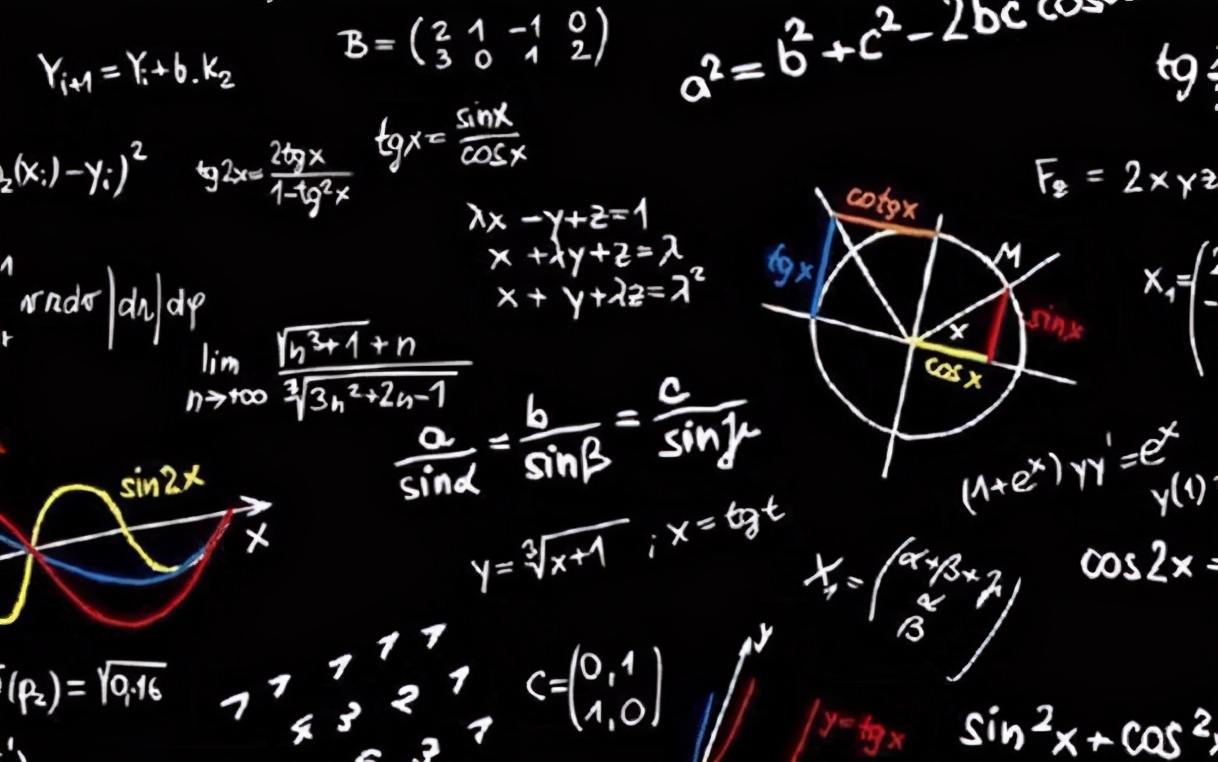 Y_{i+1} = Y_i + b.K_2
B = (2 1 -1 0
3 0 1 2)
a² = b² + c² - 2bc cos
tg
₂(x_i) - y_i)²
tg2x = 2tgx / 1-tg²x
tgx = sinx / cosx
F_2 = 2xyz
λx - y + z = 1
x + λy + z = λ
x + y + λz = λ²
cotgx
tgx
M
x
sinx
cosx
X_1 = (2
lim n→+∞ √(n³+1) + n / ∛(3n²+2n-1)
a / sinα = b / sinβ = c / sinγ
(1+e^x) yy' = e^x
y(1)
sin2x
x
y = ∛(x+1) ; x = tgt
X_1 = (α+β+γ
α
β)
cos2x =
(p_2) = √0,16
1 1 1 1 1
3 2 1
C = (0,1
1,0)
y
y=tgx
sin²x + cos²x